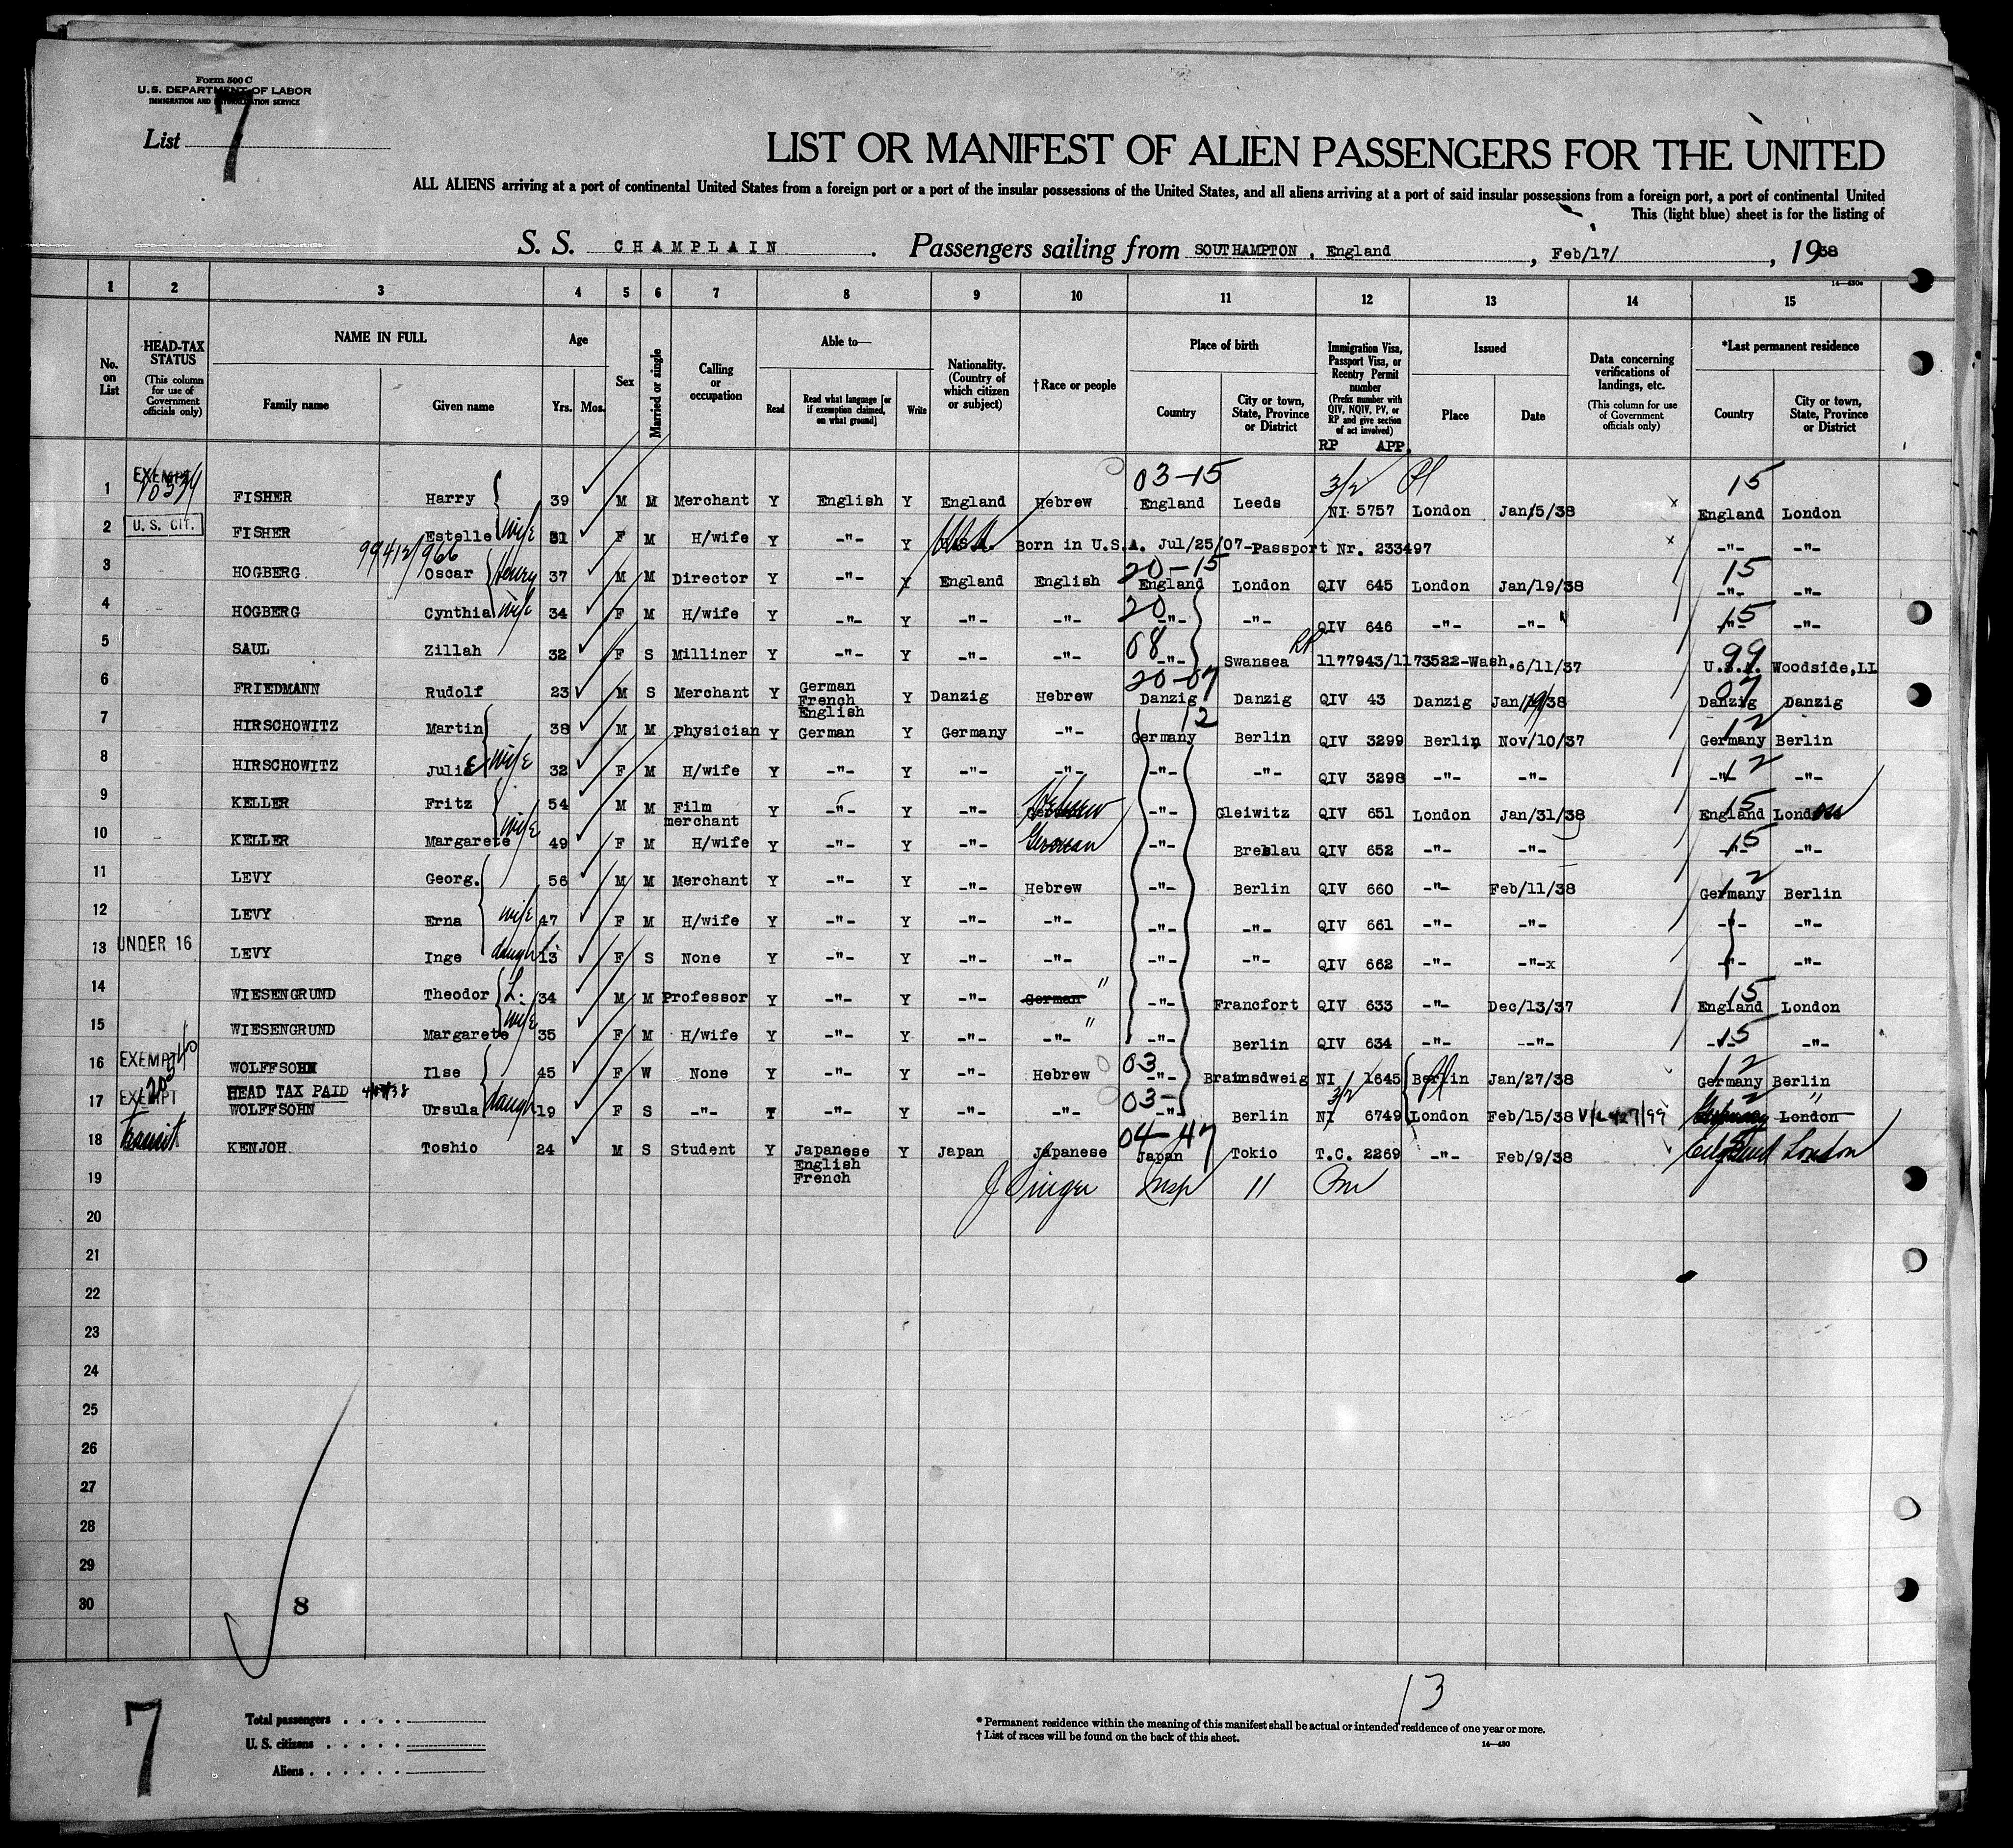 Form 500 C
U.S. DEPARTMENT OF LABOR
IMMIGRATION AND NATURALIZATION SERVICE
List 7
LIST OR MANIFEST OF ALIEN PASSENGERS FOR THE UNITED
ALL ALIENS arriving at a port of continental United States from a foreign port or a port of the insular possessions of the United States, and all aliens arriving at a port of said insular possessions from a foreign port, a port of continental United
This (light blue) sheet is for the listing of
S. S. CHAMPLAIN. Passengers sailing from SOUTHAMPTON, England, Feb/17/, 1938
1 2 3 4 5 6 7 8 9 10 11 12 13 14 15
No. on List
HEAD-TAX STATUS (This column for use of Government officials only)
NAME IN FULL
Family name Given name
Age
Yrs. Mos.
Sex
Married or single
Calling or occupation
Able to—
Read Read what language [or if exemption claimed, on what ground] Write
Nationality. (Country of which citizen or subject)
† Race or people
Place of birth
Country City or town, State, Province or District
Immigration Visa, Passport Visa, or Reentry Permit number (Prefix number with QIV, NQIV, PV, or RP and give section of act involved)
RP APP.
Issued
Place Date
Data concerning verifications of landings, etc. (This column for use of Government officials only)
*Last permanent residence
Country City or town, State, Province or District
03-15 3/2 15
1 EXEMPT FISHER Harry 39 M M Merchant Y English Y England Hebrew England Leeds NI 5757 London Jan/5/38 x England London
2 U. S. CIT. FISHER Estelle wife 31 F M H/wife Y -"- Y U.S.A. Born in U.S.A. Jul/25/07-Passport Nr. 233497 x -"- -"-
99412/966 20-15 15
3 HOGBERG Oscar Henry 37 M M Director Y -"- Y England English England London QIV 645 London Jan/19/38 -"- -"-
4 HOGBERG Cynthia wife 34 F M H/wife Y -"- Y -"- -"- 20 -"- -"- QIV 646 -"- -"- 15 -"- -"-
5 SAUL Zillah 32 F S Milliner Y -"- Y -"- -"- 68 -"- Swansea RP 1177943/1173522-Wash. 6/11/37 99 U.S.A. Woodside,LI
20-07 07
6 FRIEDMANN Rudolf 23 M S Merchant Y German French English Y Danzig Hebrew Danzig Danzig QIV 43 Danzig Jan/19/38 Danzig Danzig
7 HIRSCHOWITZ Martin 38 M M Physician Y German Y Germany -"- 12 Germany Berlin QIV 3299 Berlin Nov/10/37 12 Germany Berlin
8 HIRSCHOWITZ Julie wife 32 F M H/wife Y -"- Y -"- -"- -"- -"- QIV 3298 -"- -"- 12 -"- -"-
9 KELLER Fritz 54 M M Film merchant Y -"- Y -"- Hebrew -"- Gleiwitz QIV 651 London Jan/31/38 15 England London
10 KELLER Margarete wife 49 F M H/wife Y -"- Y -"- German -"- Breslau QIV 652 -"- -"- 15 -"- -"-
11 LEVY Georg. 56 M M Merchant Y -"- Y -"- Hebrew -"- Berlin QIV 660 -"- Feb/11/38 12 Germany Berlin
12 LEVY Erna wife 47 F M H/wife Y -"- Y -"- -"- -"- -"- QIV 661 -"- -"- -"- -"-
13 UNDER 16 LEVY Inge daugh 13 F S None Y -"- Y -"- -"- -"- -"- QIV 662 -"- -"-x -"- -"-
14 WIESENGRUND Theodor L. 34 M M Professor Y -"- Y -"- German " -"- Francfort QIV 633 -"- Dec/13/37 15 England London
15 WIESENGRUND Margarete wife 35 F M H/wife Y -"- Y -"- -"- " -"- Berlin QIV 634 -"- --"- 15 -"- -"-
16 EXEMPT WOLFFSOHN Ilse 45 F W None Y -"- Y -"- Hebrew 03 -"- Braunsdweig NI 1645 Berlin Jan/27/38 12 Germany Berlin
HEAD TAX PAID
17 EXEMPT WOLFFSOHN Ursula daugh 19 F S -"- Y -"- Y -"- -"- 03- -"- Berlin 3/2 NI 6749 London Feb/15/38 London "
18 Transit KENJOH Toshio 24 M S Student Y Japanese English French Y Japan Japanese 04-47 Japan Tokio T.C. 2269 -"- Feb/9/38 England London
19 J Singer Insp "
20
21
22
23
24
25
26
27
28
29
30
8
13
7
Total passengers
U. S. citizens
Aliens
* Permanent residence within the meaning of this manifest shall be actual or intended residence of one year or more.
† List of races will be found on the back of this sheet.
14—430